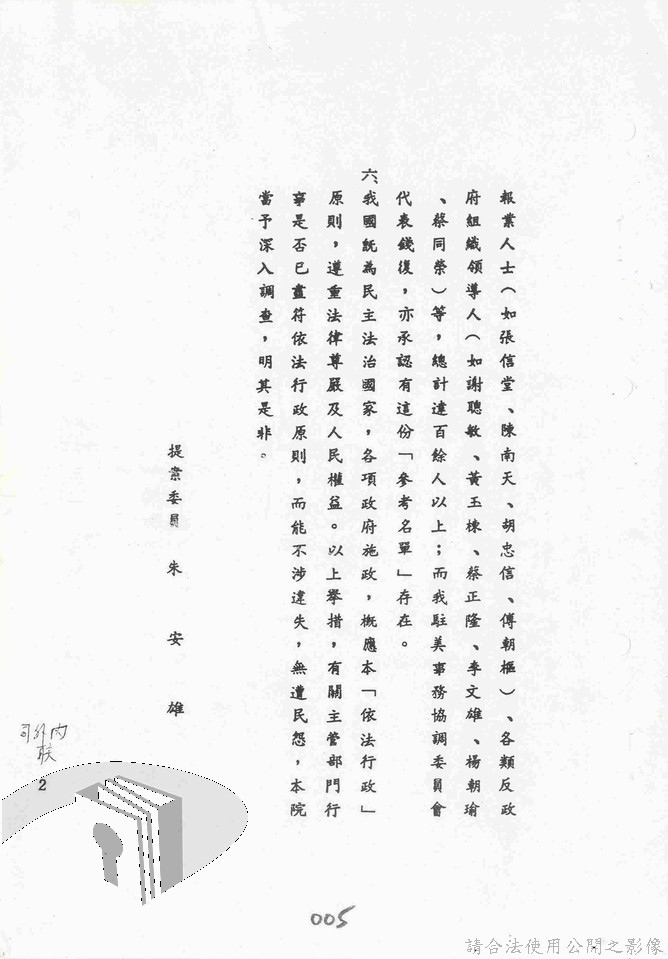 報業人士(如張信堂、陳南天、胡忠信、傅朝樞)、各類反政
府組織領導人(如謝聰敏、黃玉棟、蔡正隆、李文雄、楊朝瑜
、蔡同榮)等,總計達百餘人以上;而我駐美事務協調委員會
代表錢復,亦承認有這份「參考名單」存在。
六、我國既為民主法治國家,各項政府施政,概應本「依法行政」
原則,遵重法律尊嚴及人民權益。以上舉措,有關主管部門行
事是否已盡符依法行政原則,而能不涉違失,無遭民怨,本院
當予深入調查,明其是非。
提案委員 朱安雄
2
005
請合法使用公開之影像